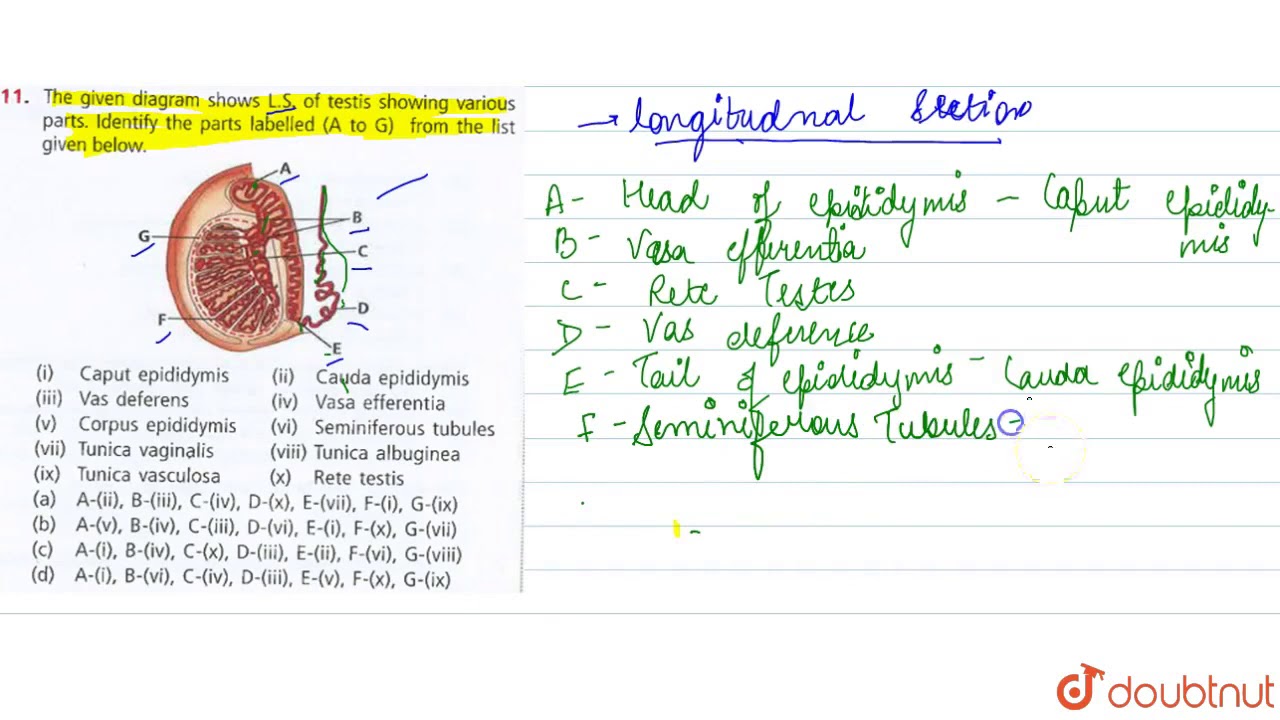 11. The given diagram shows L.S. of testis showing various
parts. Identify the parts labelled (A to G) from the list
given below.
A
B
G
C
D
F
E
(i) Caput epididymis (ii) Cauda epididymis
(iii) Vas deferens (iv) Vasa efferentia
(v) Corpus epididymis (vi) Seminiferous tubules
(vii) Tunica vaginalis (viii) Tunica albuginea
(ix) Tunica vasculosa (x) Rete testis
(a) A-(ii), B-(iii), C-(iv), D-(x), E-(vii), F-(i), G-(ix)
(b) A-(v), B-(iv), C-(iii), D-(vi), E-(i), F-(x), G-(vii)
(c) A-(i), B-(iv), C-(x), D-(iii), E-(ii), F-(vi), G-(viii)
(d) A-(i), B-(vi), C-(iv), D-(iii), E-(v), F-(x), G-(ix)
→ longitudnal Section
A- Head of epididymis - Caput epididy-
mis
B- Vasa efferentia
C- Rete Testes
D- Vas deference
E- Tail of epididymis - Cauda epididymis
F- Seminiferous Tubules -
doubtnut